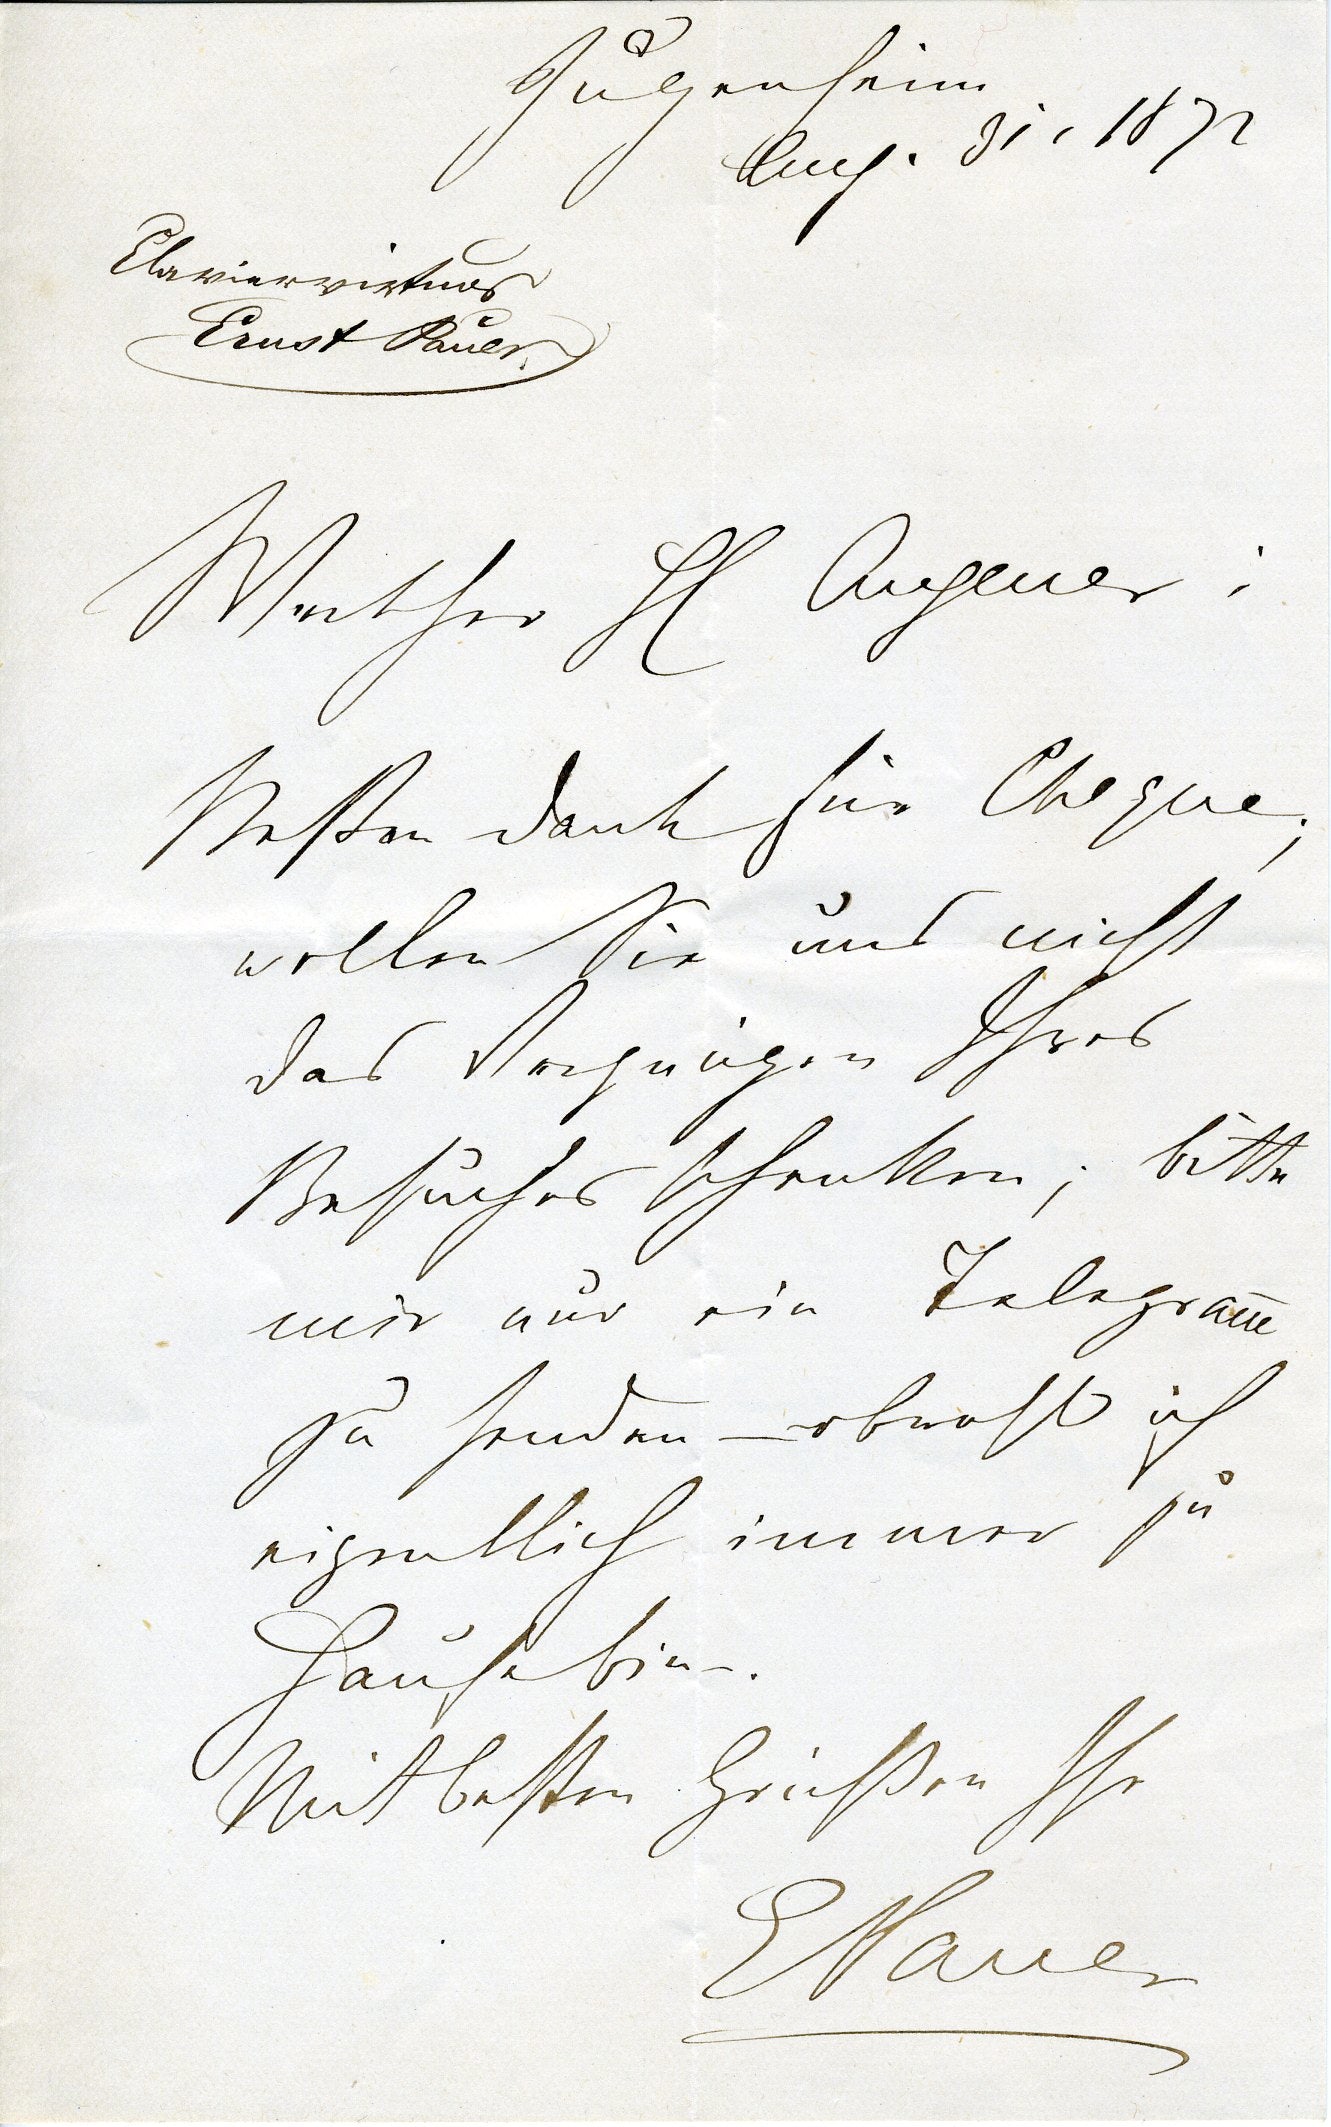 Jugenheim
Aug. 31, 1872
Claviervirtuos
Ernst Pauer.
Werther H Augener;
Besten Dank für Cheque;
wollen Sie uns nicht
das Vergnügen Ihres
Besuches schenken; bitte
mir nur ein Telegram̅e
zu senden – obwohl ich
eigentlich immer zu
Hause bin –.
Mit besten Grüßen Ihr
E Pauer